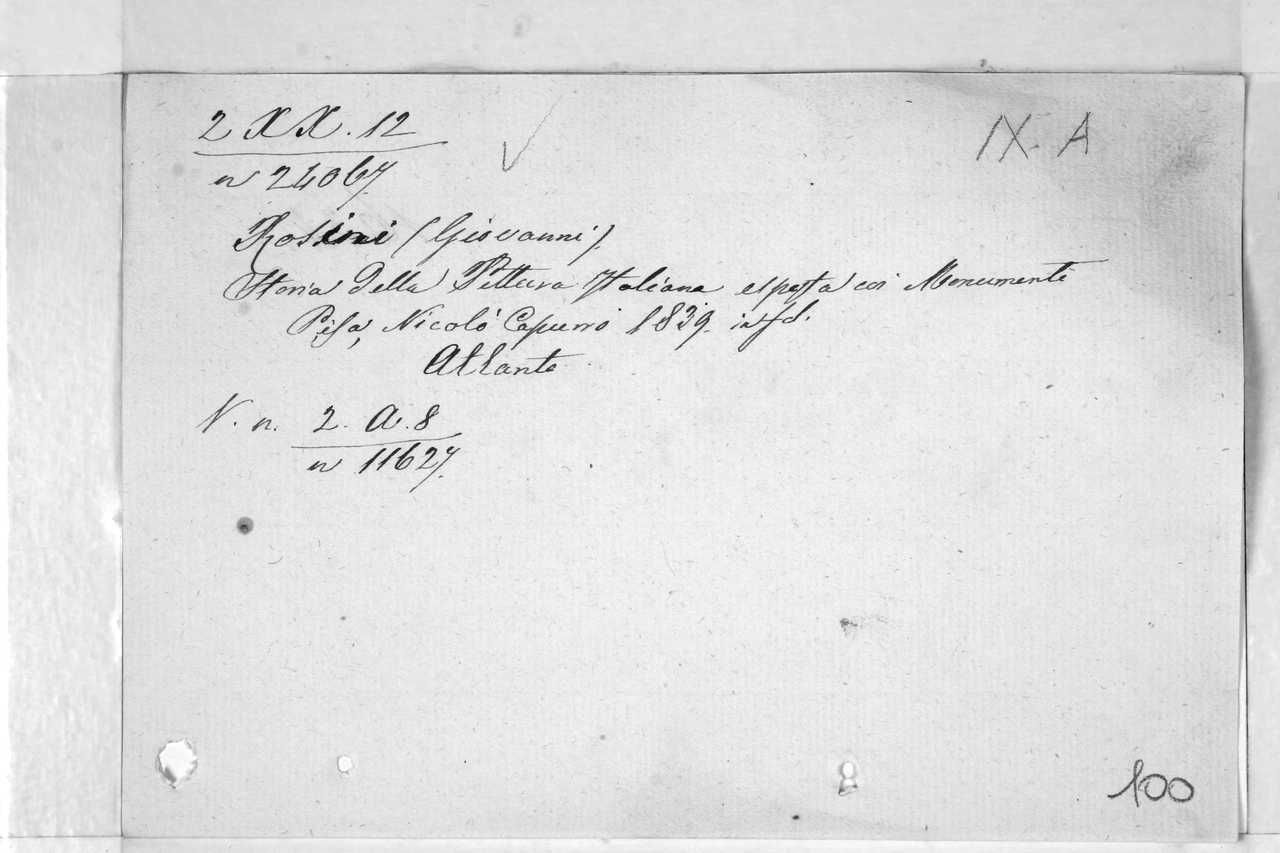 2 XX. 12
IX. A
n 24067
Rosini (Giovanni)
Storia della Pittura Italiana esposta coi Monumenti
Pisa, Nicolò Capurro 1839. in fol.
Atlante
N. n. 2. A. 8
n 11627.
100